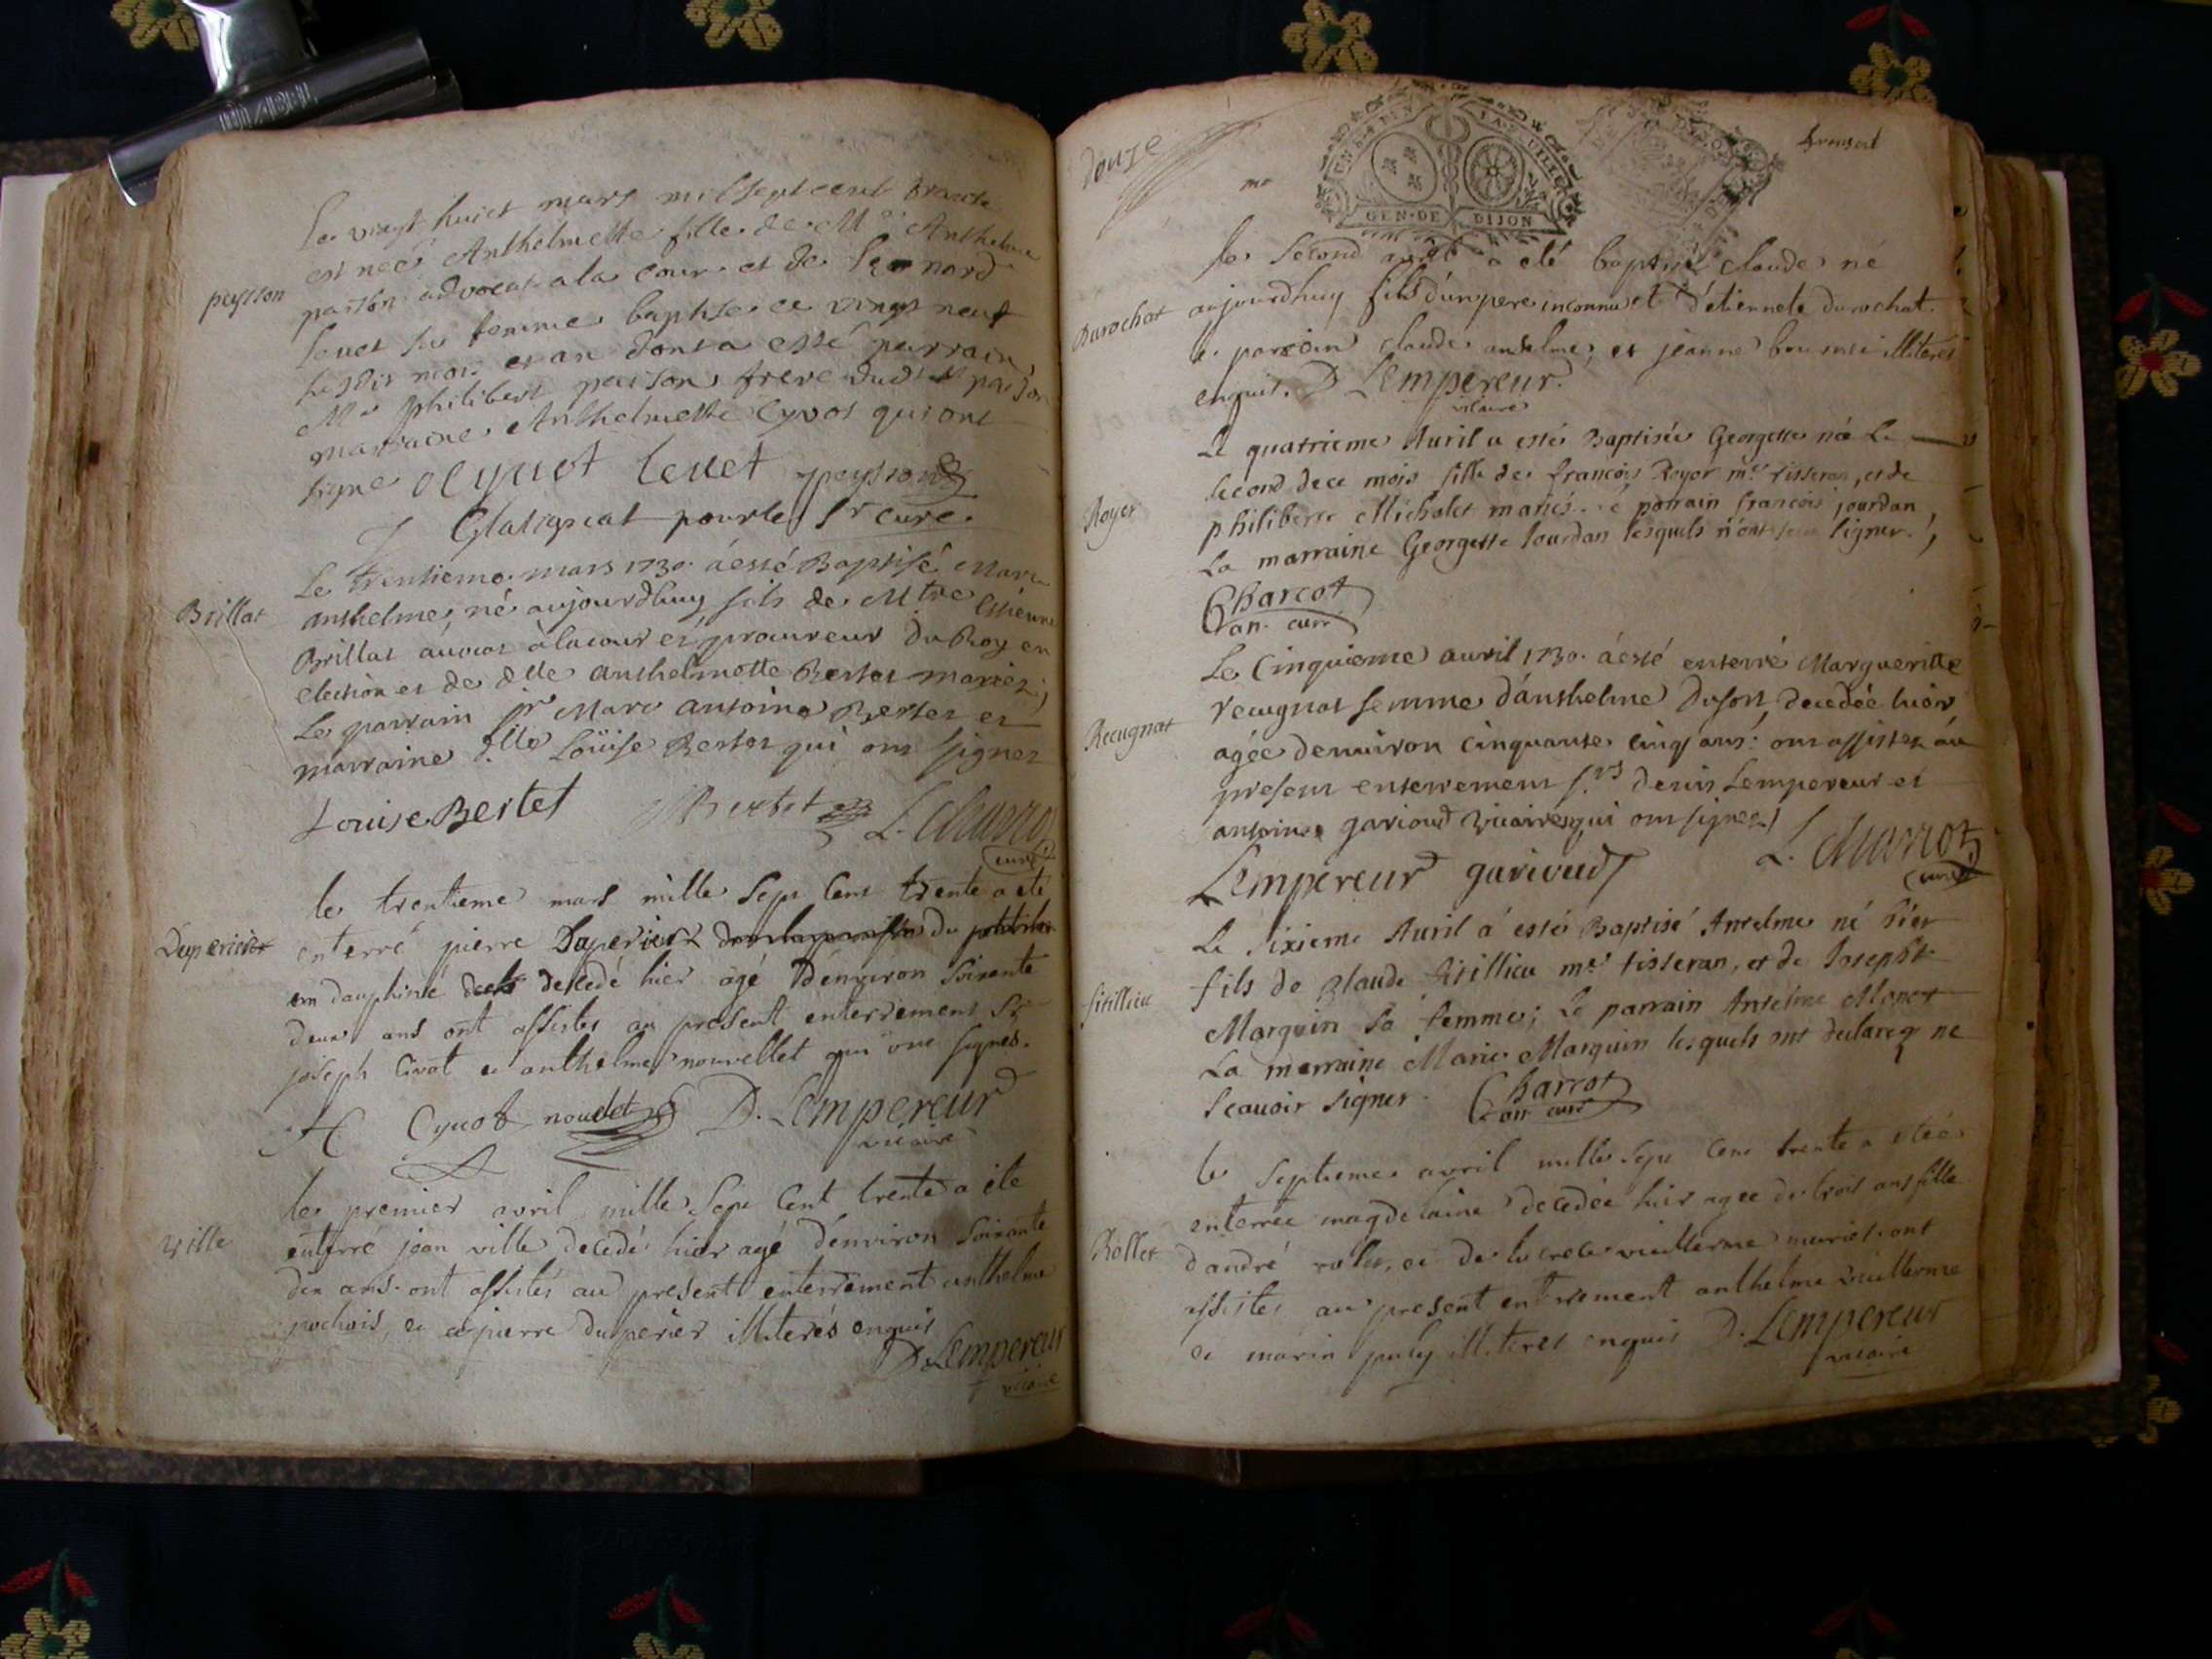 Le vingt huict mars mil sept cent trante
est neé Anthelmette fille de Mr Anthelme
peysson
paison advocat a la cour et de Leonord
levet sa femme baptisee ce vingt neuf
mois et an dont a esté parrain
Mr philibert paison frere dud sr paison
marraine Anthelmette Cyvot qui ont
signe A Cyuot levet peysson
Glatignat pour le Sr curé
Le trentieme mars 1730 a esté Baptisé Marc
Brillat
anthelme, né aujourdhuy fils de Mtre Estienne
Brillat auocat à la cour et procureur du Roy en
election et de dlle anthelmette Bertet mariez;
Le parrain sr Marc antoine Bertet et
marraine dlle Loüise Bertet qui ont signez
Louise Bertet MBertet L. Charcot
curé
le trentieme mars mille sept cent trente a eté
Duperier
enterré pierre Duperier du
en dauphiné decedé hier agé d'environ soixante
deux ans ont assistes au present enterrement Sr
joseph Civot et anthelme nouvellet qui ont signes.
Cyuot nouelet D. Lempereur
vicaire
le premier avril mille sept cent trente a ete
ville
enterré jean ville decedé hier agé d'environ soixante
dix ans ont assistés au present enterrement anthelme
pochois, et pierre duperier illiterés enquis
D. Lempereur
vicaire
douze
GEN. DE DIJON
le second avril a eté baptisé claude né
Durochat
aujourdhuy fils d'un pere inconnu et d'etiennete durochat.
parrain claude anselme, et jeanne illiterés
enquis. D Lempereur
vicaire
Le quatrieme Auril a esté Baptisée Georgette née Le
second de ce mois fille de françois Royer me tisseran, et de
Royer
philiberte Micholet mariés. parrain françois jourdan,
La marraine Georgette Jourdan lesquels n'ont sceu signer.
Charcot
an. curé
Le Cinquieme auril 1730. a esté enterré Margueritte
Recugnat
recugnat femme d'anthelme Duson decedée hier
agée denuiron cinquante cinq ans: ont assistez au
present enterrement srs denis Lempereur et
antoine garioud vicaires qui ont signez
Lempereur gurioud L. Charcot
curé
Le sixieme Auril a esté Baptisé Anselme né hier
fitillieu
fils de Claude fitillieu me tisseran, et de Josephte
Marquin sa femme; Le parrain Anselme Monet
La marraine Marie Marquin lesquels ont declarez ne
scauoir signer. Charcot
an curé
le septieme avril mille sept cent trente a etée
enterrée magdelaine decedée hier agee de trois ans fille
Rollet
d'andré rolet, et de lucrece vuillerme mariés. ont
assistes au present enterrement anthelme vuillerme
et marin illiteres enquis D. Lempereur
vicaire